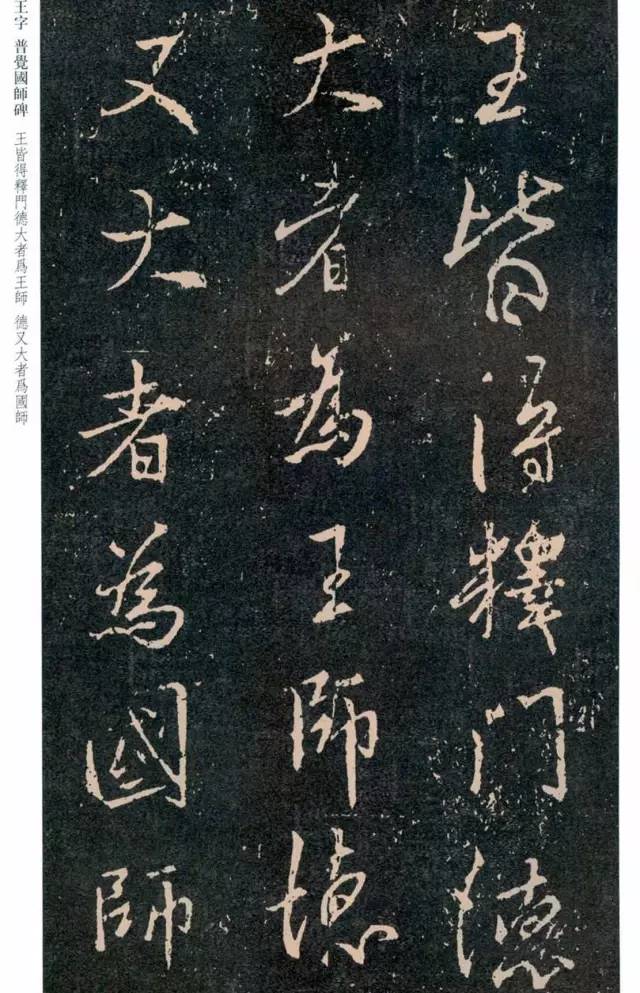 王皆得釋門德
大者為王師德
又大者為國師
王字 普覺國師碑 王皆得釋門德大者爲王師 德又大者爲國師